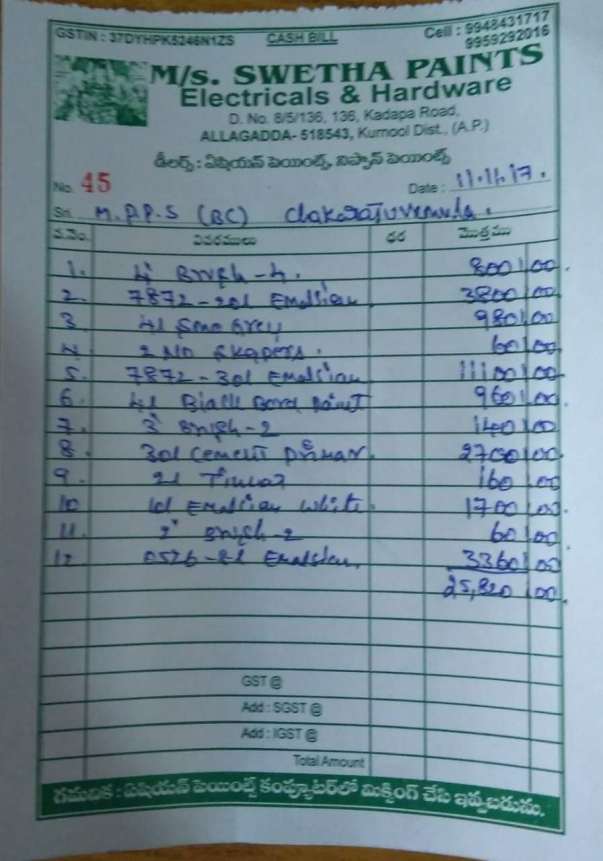 GSTIN : 37DYHPK5246N1ZS CASH BILL Cell : 9948431717
9959292016
M/s. SWETHA PAINTS
Electricals & Hardware
D. No. 8/5/136, 136, Kadapa Road,
ALLAGADDA- 518543, Kurnool Dist., (A.P.)
డీలర్స్ : ఏషియన్ పెయింట్స్, నిప్పాన్ పెయింట్స్
No. 45 Date : 11.11.17.
Sri. M.P.P.S (BC) Chakarajuvemula.
వ.నెం. వివరములు ధర మొత్తము
1. 4" Brush-4. 800 00.
2. 7872-20l Emulsian 3800 00
3 4l Smo Grey 980 00
4 2 No Skapers. 60 00
5. 7872-30l Emalsian 11100 00
6. 4l Black Bord Paint 960 00
7. 3" Brush-2 140 00
8. 30l Cement Primar. 2700 00
9. 2l 160 00
10 10l Emalsian White. 1700 00.
11. 2" Brush-2 60 00
12 0526-8l Emalsian. 3360 00
25,820 00.
GST @
Add : SGST @
Add : IGST @
Total Amount
గమనిక : ఏషియన్ పెయింట్స్ కంప్యూటర్‌లో మిక్సింగ్ చేసి ఇవ్వబడును.